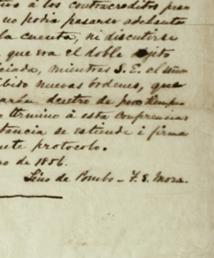 à los contracréditos pre
no podía pasarse adelante
la cuenta, ni discutirse
que era el doble objeto
iciada, mientras S. E. el señor
ibido nuevas órdenes, que
arán dentro de poco tiempo
término à esta conferencia
tancia se estiende i firma
ente protocolo.
o de 1856.
Lino de Pombo – F. E. Mora.